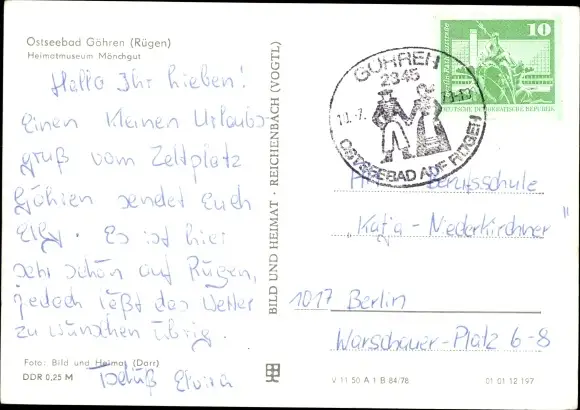 Ostseebad Göhren (Rügen)
Heimatmuseum Mönchgut
Hallo Ihr Lieben!
Einen kleinen Urlaubs
gruß vom Zeltplatz
Göhren sendet Euch
Es ist hier
sehr schön auf Rügen,
jedoch läßt das Wetter
zu wünschen übrig.
Tschüß Elvira
Foto: Bild und Heimat (Darr)
DDR 0,25 M
BILD UND HEIMAT REICHENBACH (VOGTL)
GÖHREN
2345
11.-7.
OSTSEEBAD AUF RÜGEN
10
DEUTSCHE DEMOKRATISCHE REPUBLIK
Berufsschule
"Katja-Niederkirchner"
1017 Berlin
Warschauer-Platz 6-8
V 11 50 A 1 B 84/78
01 01 12 197